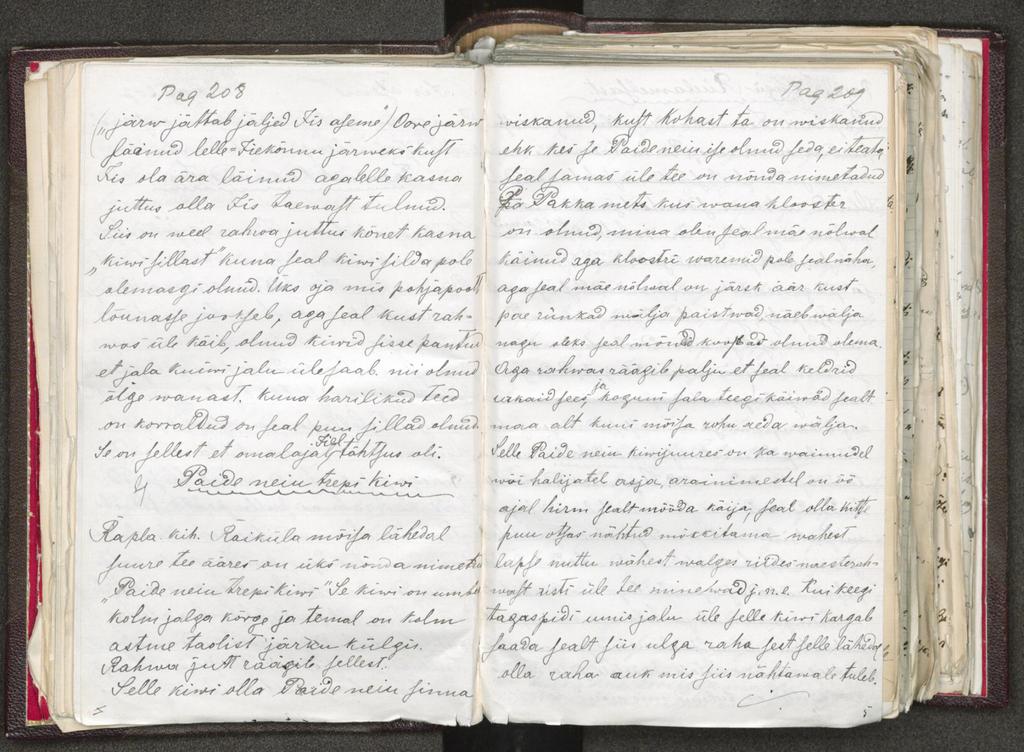 Pag 208
("järw jättab jäljed Iis aseme") Oowejärw
läinud lelle-Tiekõnnu järweks kust
Iis ola ära läinud aga lelle kasna
juttus olla Iis taewast tulnud.
Siis on weel rahwa juttus kõnet kasna
"kiwi sillast" kuna seal kiwi silda pole
olemasgi olnud. Üks oja mis pohjapoolt
lõunasse jookseb, aga seal kust rah-
was üle käib, olnud kiwid sisse pantud
et jala kuiwi jalu üle saab. nii olnud
älge wanast. kuna harilikud teed
on korraldud on seal puu sillad olnud.
Se on sellest et omal ajal tähtsus oli.
4) Paide neiu trepi kiwi
Rapla. kih. Raiküla mõisa lähedal
suure tee ääres on üks nõnda nimetud
"Paide neiu trepi kiwi" Se kiwi on umbes
kolm jalga kõrge ja temal on kolm
astme taolist järku külgis.
Rahwa jutt räägib sellest.
Selle kiwi olla Paide neiu sinna
Pag 209
wiskanud, kust kohast ta on wiskanud
ehk kes se Paide neiu ise olnud seda, ei teata
seal samas üle tee on nõnda nimetadud
Pakka mets kus wana klooster
on olnud, mina olen seal mäe nõlwal
käinud aga kloostri waremid pole seal näha,
aga seal mäe nõlwal on järsk äär kust
pae rünkad wälja paistwad, näeb wälja
nagu oleks seal mõned koopad olnud olema.
Aga rahwas räägib palju et seal keldrid
wakaid sees ja koguni sala teegi käiwad sealt
maa alt kuni mõisa rohu aeda wälja.
Selle Paide neiu kiwi juures on ka waimudel
wõi halijatel asja, arainimestel on öö
ajal hirm sealt mööda käija, seal olla kitse
puu otsas nähtud mökkitama wahest
lapse nuttu wahest walges riides naesterah-
wast risti üle tee minewad j.n.e. Kui keegi
tagaspidi unis jalu üle selle kiwi kargab
saada sealt siis ulga raha sest selle lähedal
olla raha auk mis siis nähtawale tuleb.
5